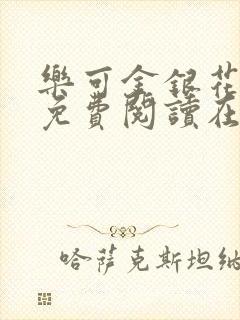 樂可金銀花
免費閱讀在
哈萨克斯坦纳